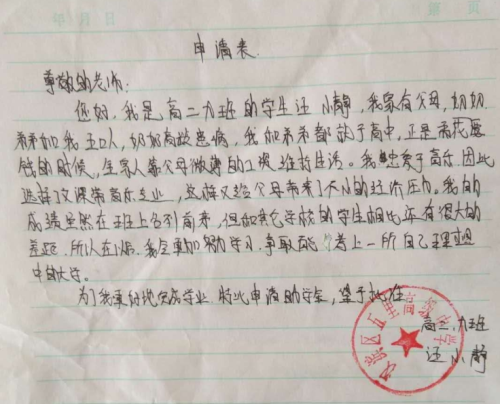 申请表
尊敬的老师：
您好，我是高二九班的学生汪小静，我家有父母，奶奶
弟弟和我五口人，奶奶高龄患病，我和弟弟都就于高中，正是需花
钱的时候，全家人靠父母微薄的工资维持生活。我忠爱于音乐，因此
选择了文课带音乐专业，这样又给父母带来了不小的经济压力，我的
成绩虽然在班上名列前茅，但和其它学校的学生相比还有很大的
差距，所以在以后，我会更加努力学习，争取能考上一所自己理想
中的大学。
为了我顺利地完成学业，特此申请助学金，望予批准
高二.九班
汪小静
区五里高级中学